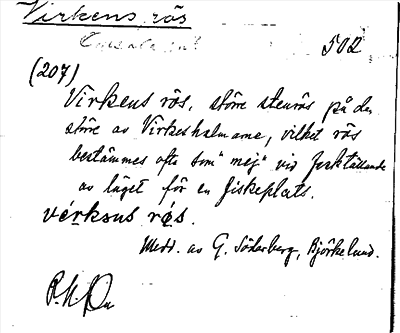 Virkens rös
502
(207)
Virkens rös, större stenrös på den
större av Virkesholmarne, vilket rös
bestämmes ofta som "mej" vid fastställande
av läget för en fiskeplats.
vérksus rǿs.
Medd. av G. Söderberg, Björkelund.